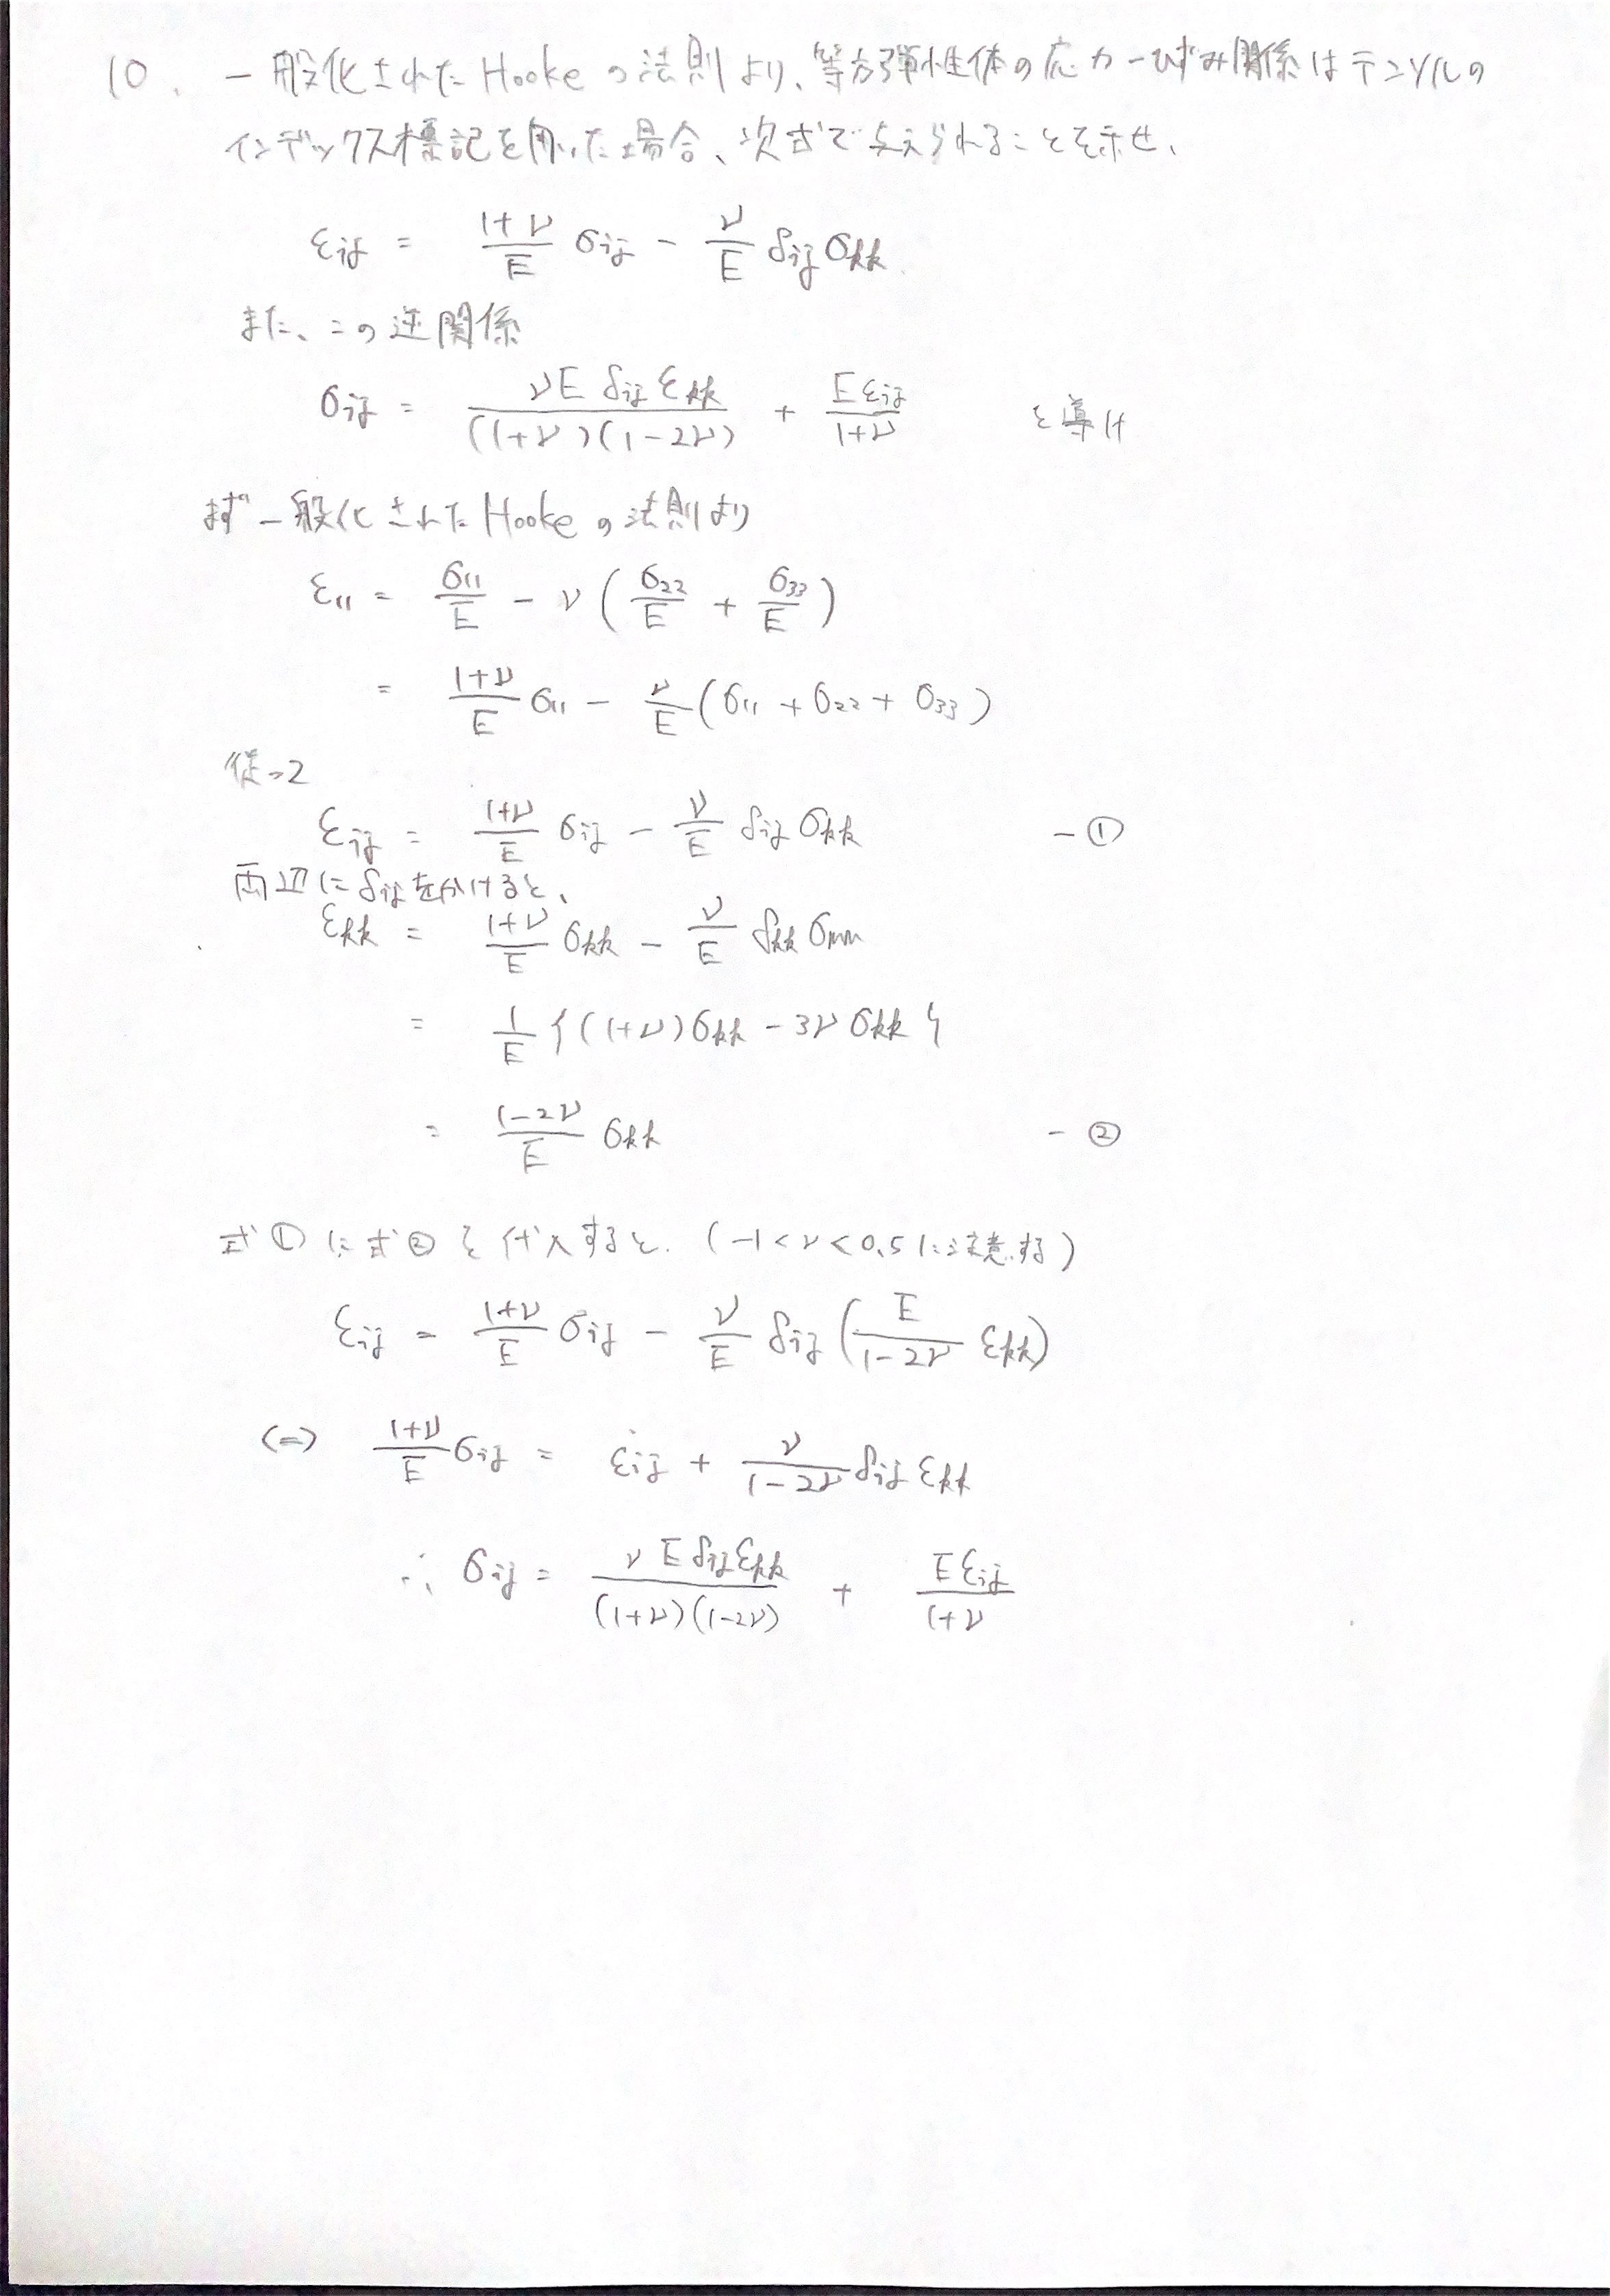 10. 一般化されたHookeの法則より、等方弾性体の応力-ひずみ関係はテンソルの
インデックス標記を用いた場合、次式で与えられることを示せ、
εij = (1+ν)/E σij - ν/E δij σkk
また、この逆関係
σij = νE δij εkk/((1+ν)(1-2ν)) + E εij/(1+ν) を導け
まず一般化されたHookeの法則より
ε11 = σ11/E - ν(σ22/E + σ33/E)
= (1+ν)/E σ11 - ν/E (σ11 + σ22 + σ33)
従って
εij = (1+ν)/E σij - ν/E δij σkk -①
両辺にδijをかけると、
εkk = (1+ν)/E σkk - ν/E δkk σmm
= 1/E {(1+ν)σkk - 3ν σkk}
= (1-2ν)/E σkk -②
式①に式②を代入すると. (-1<ν<0.5に注意する)
εij = (1+ν)/E σij - ν/E δij (E/(1-2ν) εkk)
⇔ (1+ν)/E σij = εij + ν/(1-2ν) δij εkk
∴ σij = ν E δij εkk/((1+ν)(1-2ν)) + E εij/(1+ν)